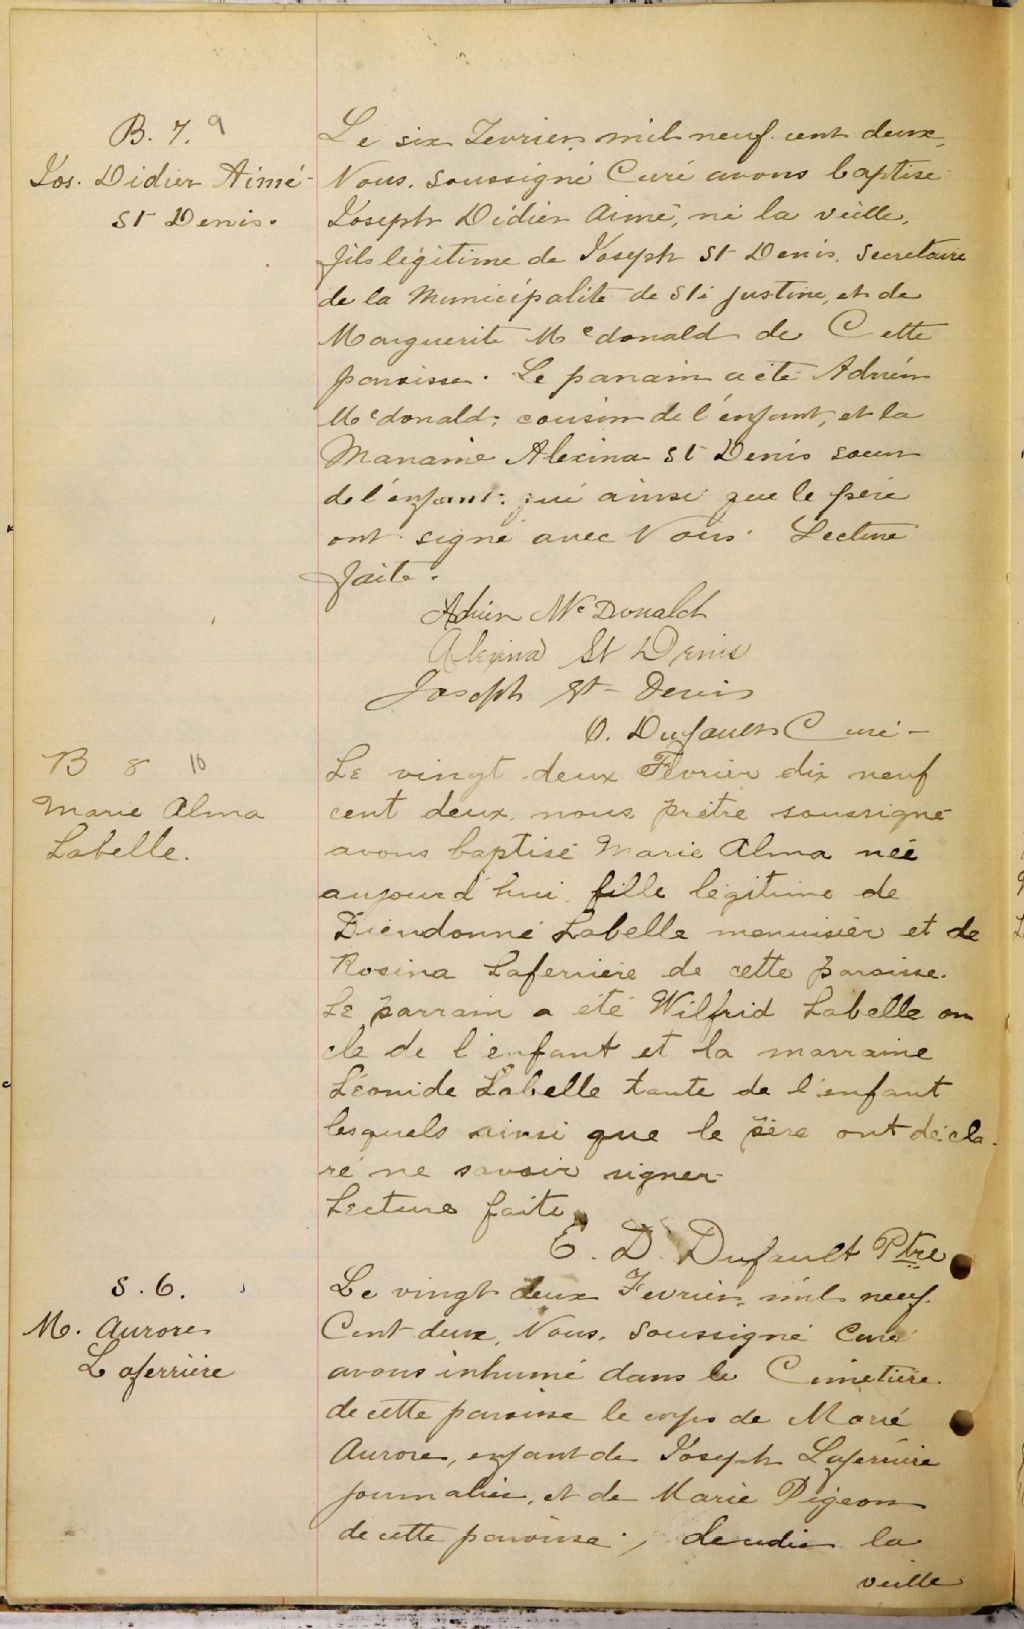 B. 7. 9
Jos. Didier Aimé
St Denis.
Le six Fevrier mil neuf cent deux,
Nous, soussigné Curé avons baptisé
Joseph Didier Aimé, né la veille,
fils légitime de Joseph St Denis, Secretaire
de la Municipalité de Ste Justine, et de
Marguerite Mcdonald de Cette
paroisse. Le parrain a été Adrien
Mcdonald, cousin de l'enfant, et la
Marraine Alexina St Denis soeur
de l'enfant: qui ainsi que le père
ont signé avec Nous. Lecture
faite.
Adrien McDonald
Alexina St Denis
Joseph St-Denis
O. Dufault Curé -
B 8 10
Marie Alma
Labelle.
Le vingt deux Février dix neuf
cent deux, nous, prêtre soussigné
avons baptisé Marie Alma née
aujourd'hui, fille légitime de
Dieudonné Labelle menuisier et de
Rosina Laferriere de cette paroisse.
Le parrain a été Wilfrid Labelle on
cle de l'enfant et la marraine
Léonide Labelle tante de l'enfant
lesquels ainsi que le père ont décla-
ré ne savoir signer
Lecture faite
E. D. Dufault Ptre
S. 6.
M. Aurore
Laferrière
Le vingt deux Fevrier, mil neuf
Cent deux, Nous, Soussigné Curé
avons inhumé dans le Cimetière
de cette paroisse le corps de Marie
Aurore, enfant de Joseph Laferrière
journalier, et de Marie Pigeon
de cette paroisse, la
veille